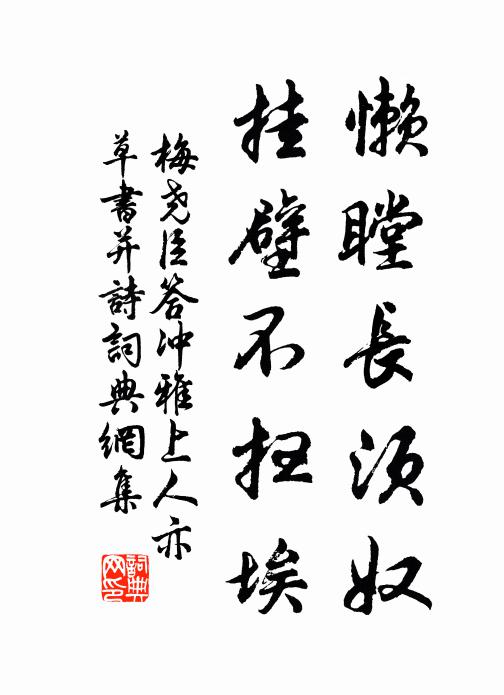 懒瞠長须奴
挂壁不扫埃
梅尧臣答冲雅上人亦
草書并詩詞典網集
詞典网印